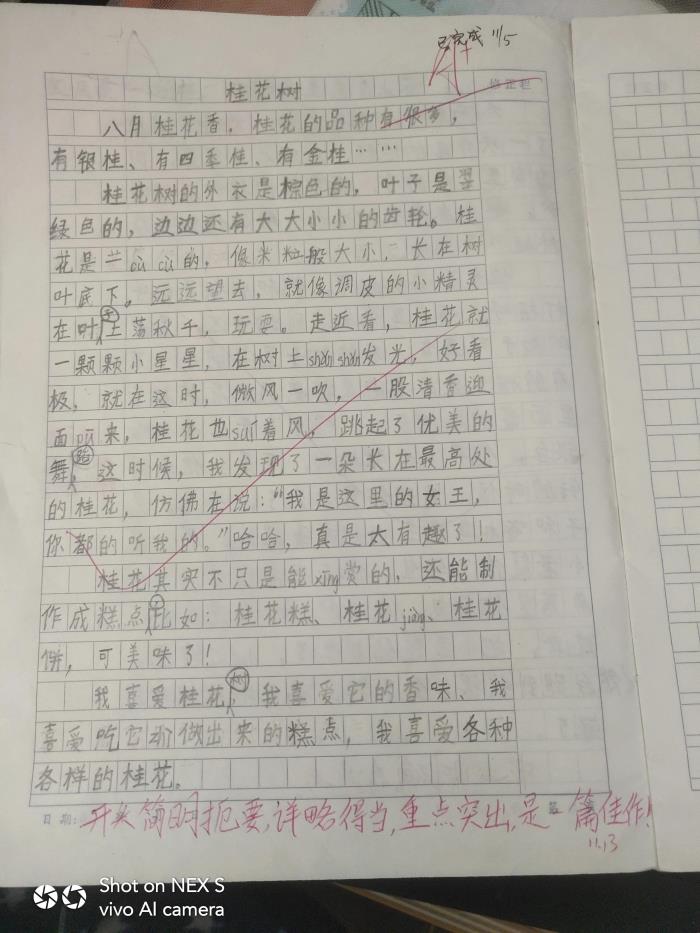 已完成 11/5
桂花树
修正栏
八月桂花香，桂花的品种有很多，
有银桂、有四季桂、有金桂……
桂花树的外衣是棕色的，叶子是翠
绿色的，边边还有大大小小的齿轮。桂
花是一 cù cù 的，像米粒般大小，长在树
叶底下。远远望去，就像调皮的小精灵
在叶子上荡秋千，玩耍。走近看，桂花就
一颗颗小星星，在树上shǎn shǎn发光，好看
极，就在这时，微风一吹，一股清香迎
面pū来，桂花也suí着风，跳起了优美的
舞蹈，这时候，我发现了一朵长在最高处
的桂花，仿佛在说：“我是这里的女王，
你都的听我的。”哈哈，真是太有趣了！
桂花其实不只是能xīng赏的，还能制
作成糕点，比如：桂花糕、桂花jiàng、桂花
饼，可美味了！
我喜爱桂花树，我喜爱它的香味、我
喜爱吃它那做出来的糕点，我喜爱各种
各样的桂花。
日期：开头简明扼要，详略得当，重点突出，是一篇佳作！
11.13
Shot on NEX S
vivo AI camera